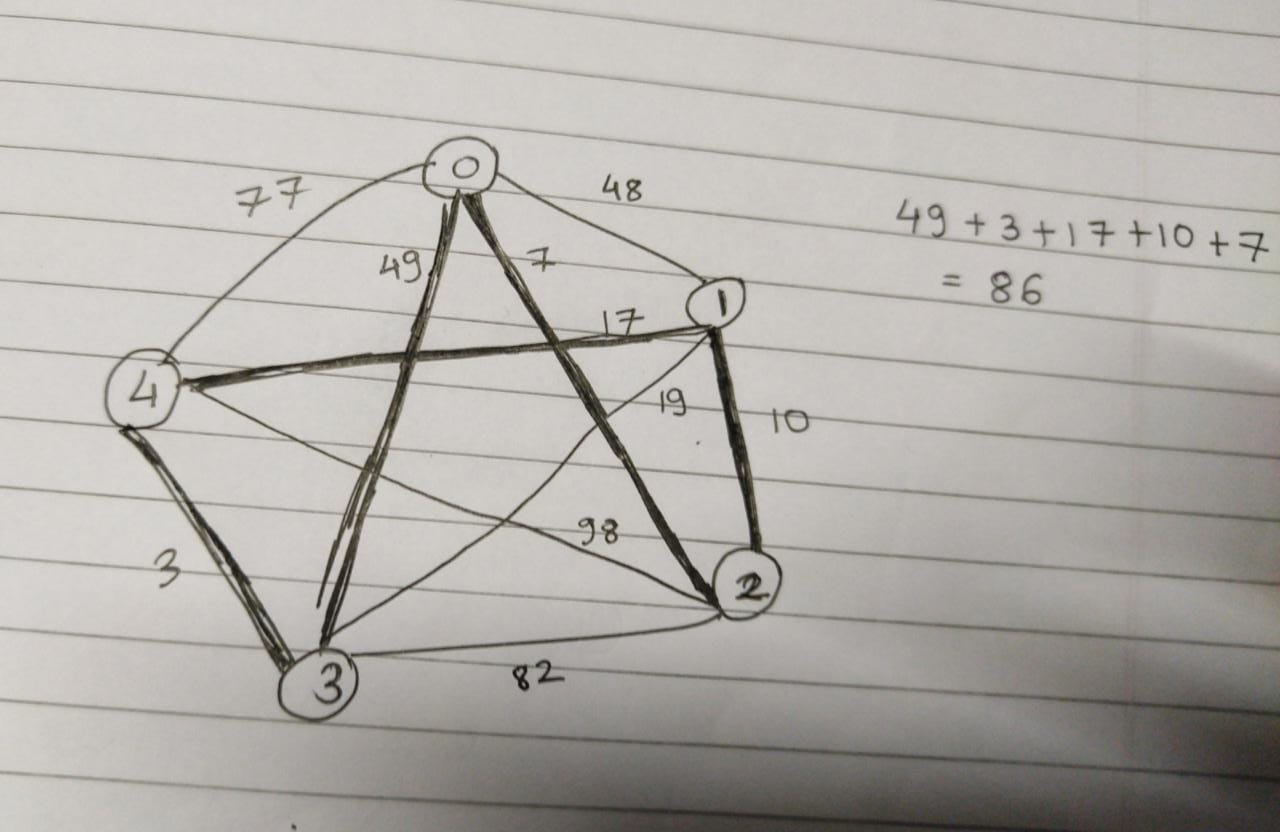 0
77
48
49
7
1
17
4
19
10
98
2
3
82
3
49 + 3 + 17 + 10 + 7
= 86